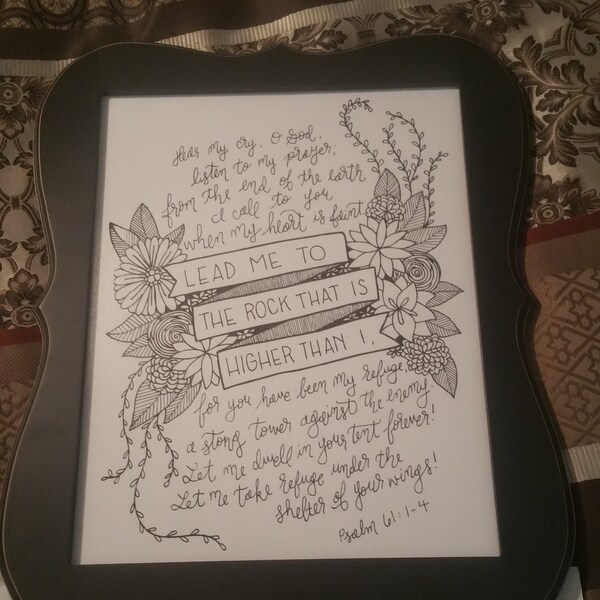 Hear my cry, O God,
listen to my prayer;
from the end of the earth
I call to you
when my heart is faint
LEAD ME TO
THE ROCK THAT IS
HIGHER THAN I,
for you have been my refuge,
a stong tower against the enemy.
Let me dwell in your tent forever!
Let me take refuge under the
shelter of your wings!
Psalm 61:1-4